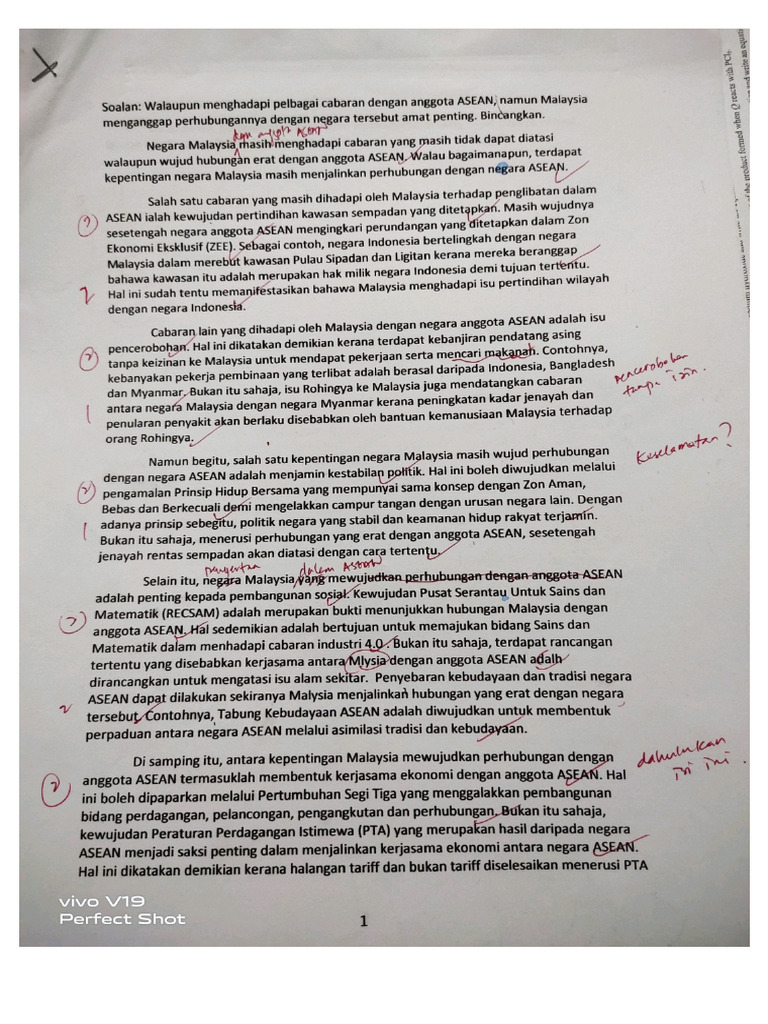 Soalan: Walaupun menghadapi pelbagai cabaran dengan anggota ASEAN, namun Malaysia
menganggap perhubungannya dengan negara tersebut amat penting. Bincangkan.
dan anggota ASEAN
Negara Malaysia masih menghadapi cabaran yang masih tidak dapat diatasi
walaupun wujud hubungan erat dengan anggota ASEAN. Walau bagaimanapun, terdapat
kepentingan negara Malaysia masih menjalinkan perhubungan dengan negara ASEAN.
Salah satu cabaran yang masih dihadapi oleh Malaysia terhadap penglibatan dalam
ASEAN ialah kewujudan pertindihan kawasan sempadan yang ditetapkan. Masih wujudnya
sesetengah negara anggota ASEAN mengingkari perundangan yang ditetapkan dalam Zon
Ekonomi Eksklusif (ZEE). Sebagai contoh, negara Indonesia bertelingkah dengan negara
Malaysia dalam merebut kawasan Pulau Sipadan dan Ligitan kerana mereka beranggap
bahawa kawasan itu adalah merupakan hak milik negara Indonesia demi tujuan tertentu.
2 Hal ini sudah tentu memanifestasikan bahawa Malaysia menghadapi isu pertindihan wilayah
dengan negara Indonesia.
Cabaran lain yang dihadapi oleh Malaysia dengan negara anggota ASEAN adalah isu
2 pencerobohan. Hal ini dikatakan demikian kerana terdapat kebanjiran pendatang asing
tanpa keizinan ke Malaysia untuk mendapat pekerjaan serta mencari makanan. Contohnya,
kebanyakan pekerja pembinaan yang terlibat adalah berasal daripada Indonesia, Bangladesh
dan Myanmar. Bukan itu sahaja, isu Rohingya ke Malaysia juga mendatangkan cabaran
pencerobohan
tanpa izin.
1 antara negara Malaysia dengan negara Myanmar kerana peningkatan kadar jenayah dan
penularan penyakit akan berlaku disebabkan oleh bantuan kemanusiaan Malaysia terhadap
orang Rohingya.
Keselamatan?
Namun begitu, salah satu kepentingan negara Malaysia masih wujud perhubungan
dengan negara ASEAN adalah menjamin kestabilan politik. Hal ini boleh diwujudkan melalui
2 pengamalan Prinsip Hidup Bersama yang mempunyai sama konsep dengan Zon Aman,
Bebas dan Berkecuali demi mengelakkan campur tangan dengan urusan negara lain. Dengan
1 adanya prinsip sebegitu, politik negara yang stabil dan keamanan hidup rakyat terjamin.
Bukan itu sahaja, menerusi perhubungan yang erat dengan anggota ASEAN, sesetengah
jenayah rentas sempadan akan diatasi dengan cara tertentu.
dalam ASEAN
Selain itu, negara Malaysia yang mewujudkan perhubungan dengan anggota ASEAN
adalah penting kepada pembangunan sosial. Kewujudan Pusat Serantau Untuk Sains dan
Matematik (RECSAM) adalah merupakan bukti menunjukkan hubungan Malaysia dengan
2 anggota ASEAN. Hal sedemikian adalah bertujuan untuk memajukan bidang Sains dan
Matematik dalam menhadapi cabaran industri 4.0 . Bukan itu sahaja, terdapat rancangan
tertentu yang disebabkan kerjasama antara Mlysia dengan anggota ASEAN adalh
dirancangkan untuk mengatasi isu alam sekitar. Penyebaran kebudayaan dan tradisi negara
2 ASEAN dapat dilakukan sekiranya Malysia menjalinkan hubungan yang erat dengan negara
tersebut. Contohnya, Tabung Kebudayaan ASEAN adalah diwujudkan untuk membentuk
perpaduan antara negara ASEAN melalui asimilasi tradisi dan kebudayaan.
Di samping itu, antara kepentingan Malaysia mewujudkan perhubungan dengan
dahulukan
isi ini.
2 anggota ASEAN termasuklah membentuk kerjasama ekonomi dengan anggota ASEAN. Hal
ini boleh dipaparkan melalui Pertumbuhan Segi Tiga yang menggalakkan pembangunan
bidang perdagangan, pelancongan, pengangkutan dan perhubungan. Bukan itu sahaja,
kewujudan Peraturan Perdagangan Istimewa (PTA) yang merupakan hasil daripada negara
ASEAN menjadi saksi penting dalam menjalinkan kerjasama ekonomi antara negara ASEAN.
Hal ini dikatakan demikian kerana halangan tariff dan bukan tariff diselesaikan menerusi PTA
1
vivo V19
Perfect Shot